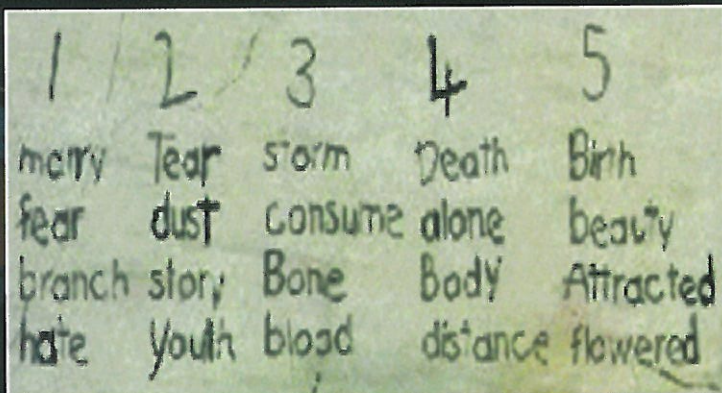 1 2 3 4 5
marry Tear storm Death Birth
fear dust consume alone beauty
branch story Bone Body Attracted
hate Youth blood distance flowered